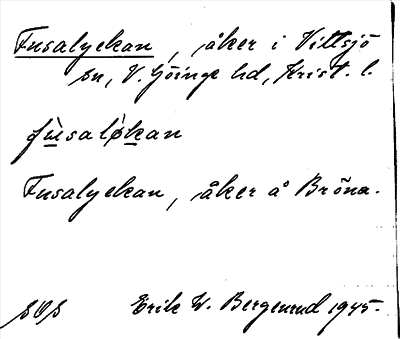 Fusalyckan, åker i Vittsjö
sn, V. Göinge hd, Krist. l.
fùsaløkan
Fusalyckan, åker å Bröna.
SOS Erik W. Bergenrud 1945.